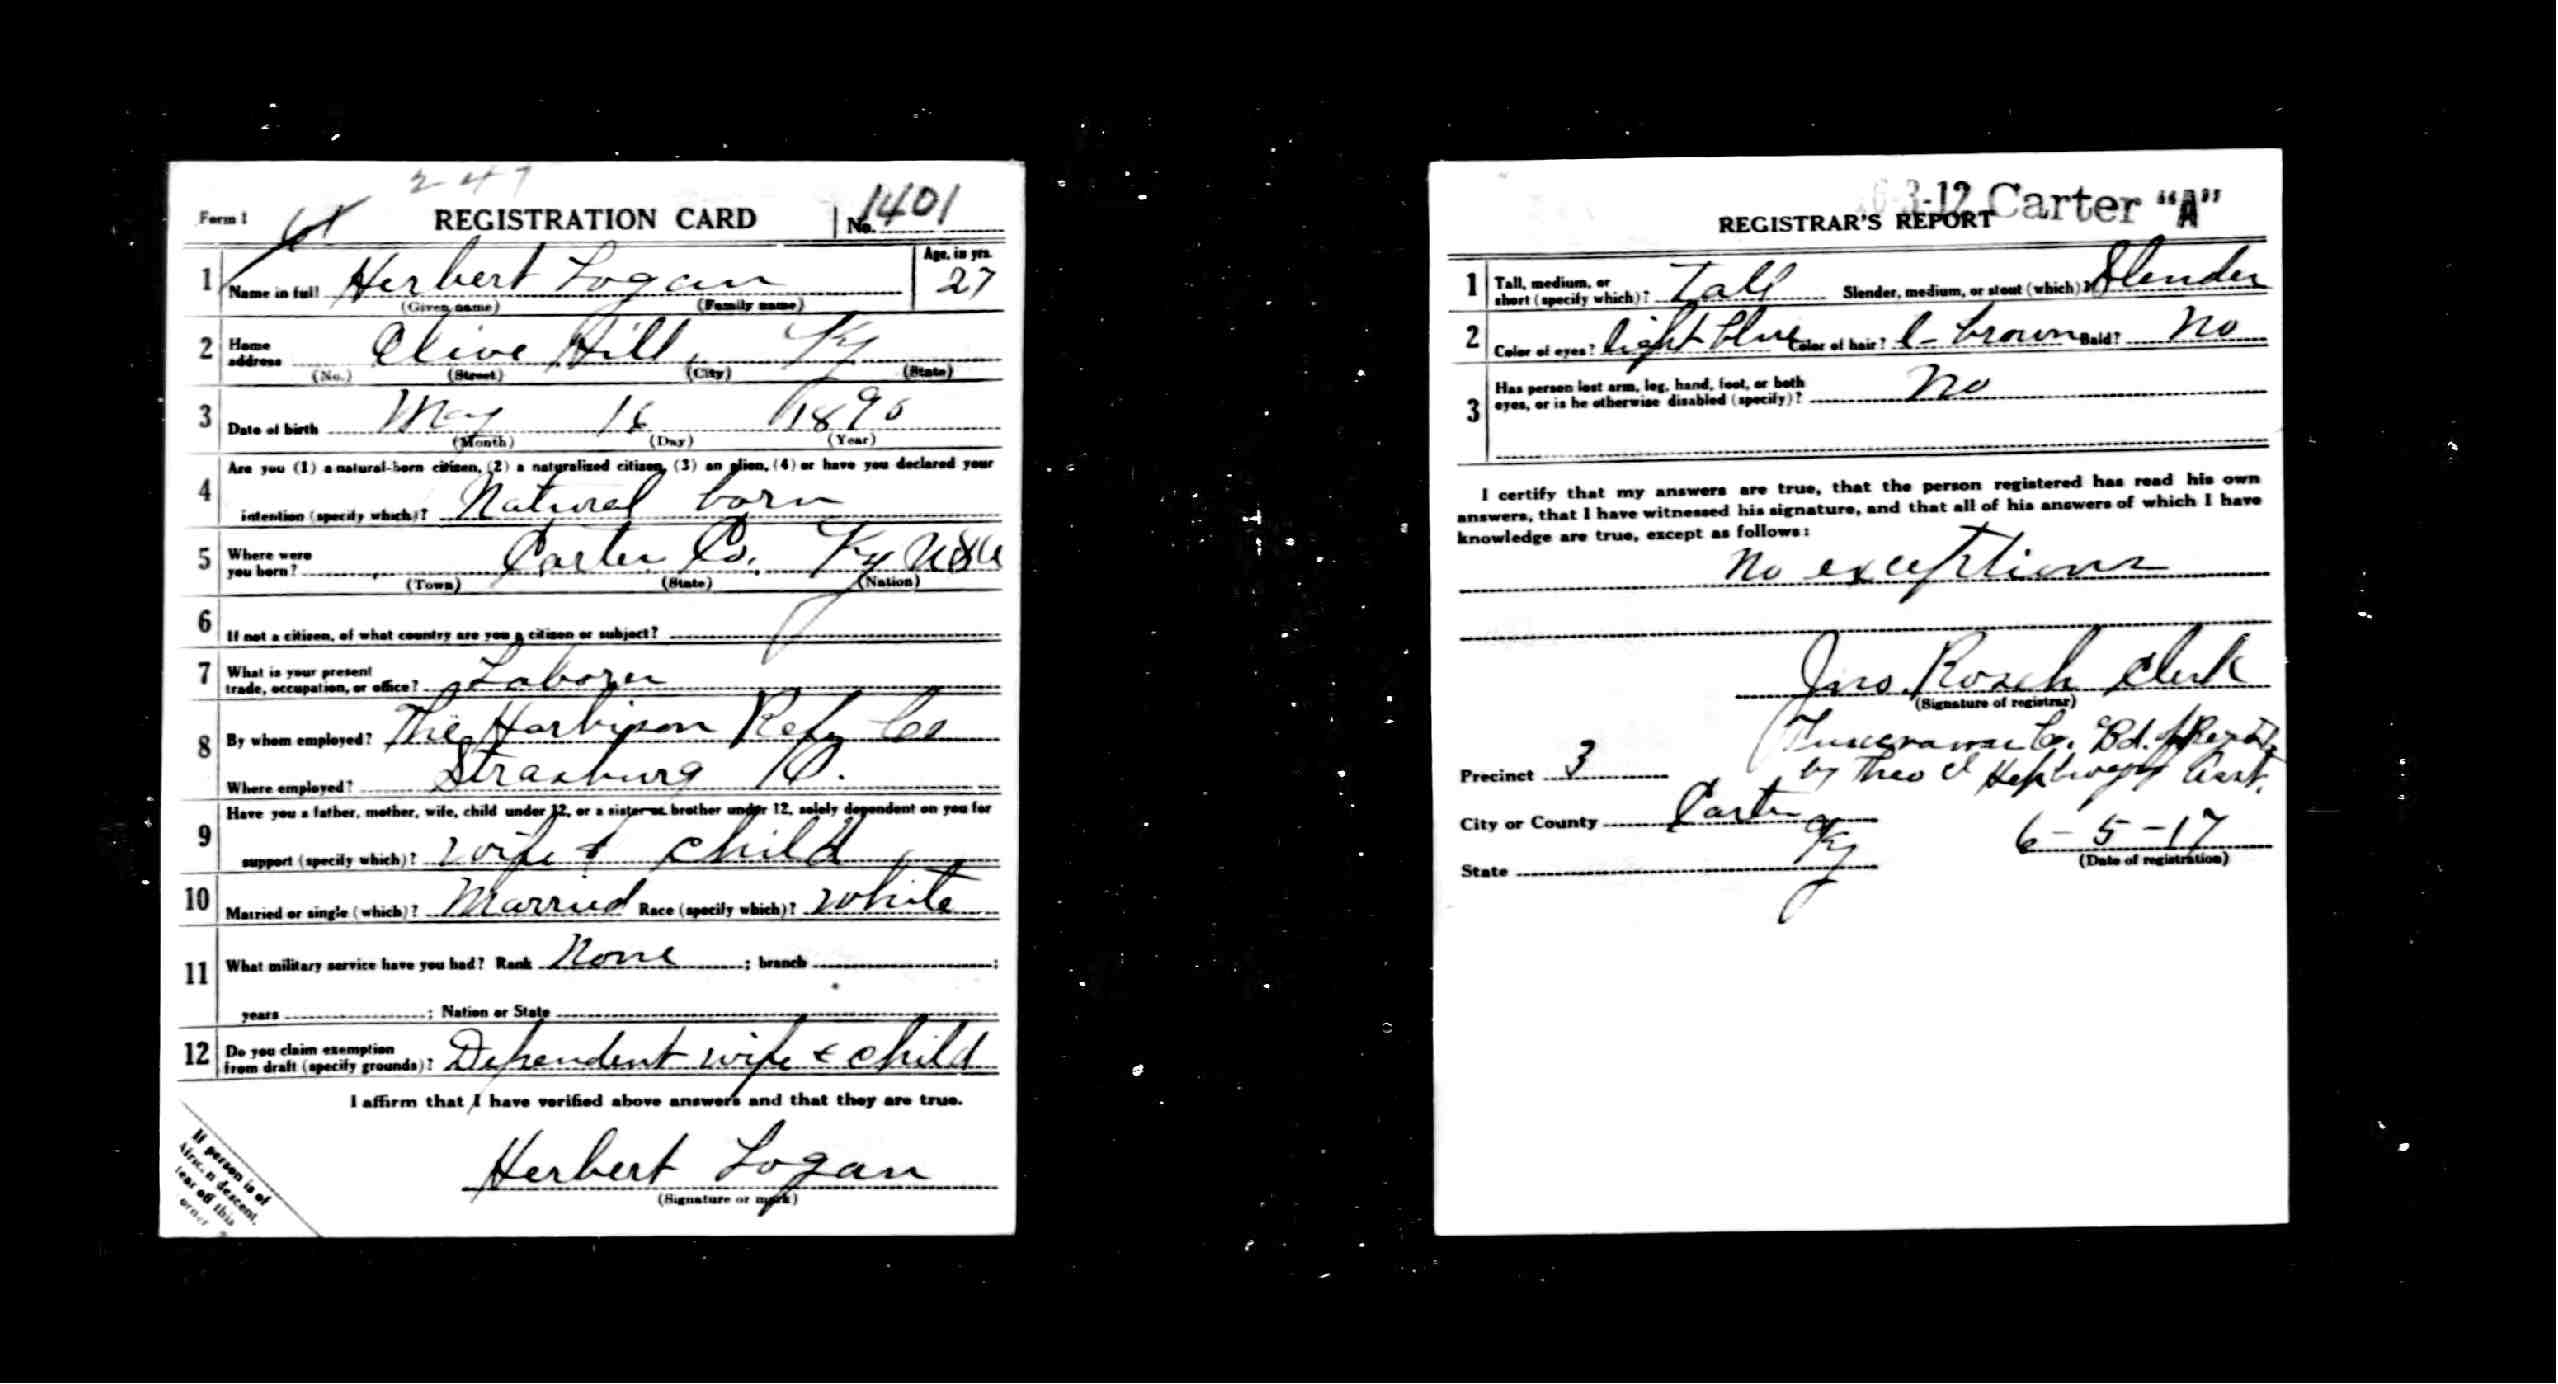 247
Form 1 REGISTRATION CARD No. 1401
1 Name in full Herbert Logan Age, in yrs. 27
(Given name) (Family name)
2 Home address Olive Hill, Ky
(No.) (Street) (City) (State)
3 Date of birth May 16 1890
(Month) (Day) (Year)
4 Are you (1) a natural-born citizen, (2) a naturalized citizen, (3) an alien, (4) or have you declared your
intention (specify which)? Natural born
5 Where were you born? Carter Co. Ky USA
(Town) (State) (Nation)
6 If not a citizen, of what country are you a citizen or subject?
7 What is your present trade, occupation, or office? Laborer
8 By whom employed? The Harbison Refy Co
Where employed? Strasburg O.
9 Have you a father, mother, wife, child under 12, or a sister or brother under 12, solely dependent on you for
support (specify which)? wife & child
10 Married or single (which)? Married Race (specify which)? White
11 What military service have you had? Rank None ; branch ;
years ; Nation or State
12 Do you claim exemption from draft (specify grounds)? Dependent wife & child
I affirm that I have verified above answers and that they are true.
Herbert Logan
(Signature or mark)
If person is of
African descent,
tear off this
corner
16-3-12 Carter "A"
REGISTRAR'S REPORT
1 Tall, medium, or short (specify which)? Tall Slender, medium, or stout (which)? Slender
2 Color of eyes? light blue Color of hair? l- brown Bald? No
3 Has person lost arm, leg, hand, foot, or both eyes, or is he otherwise disabled (specify)? No
I certify that my answers are true, that the person registered has read his own
answers, that I have witnessed his signature, and that all of his answers of which I have
knowledge are true, except as follows:
No exceptions
Jno. Rosch Clerk
(Signature of registrar)
Tuscarawas Co. Bd.
Precinct 3 by Theo
City or County Carter
State Ky 6-5-17
(Date of registration)